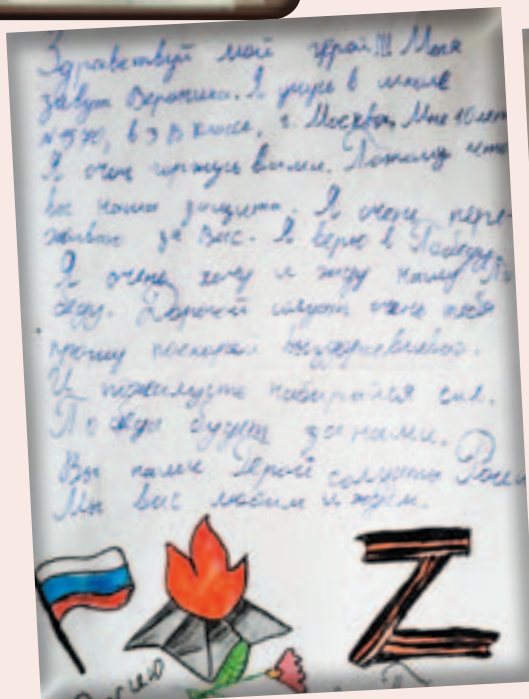 Здравствуй мой герой!!! Меня
зовут Вероника. Я учусь в школе
№ 570, в 3 В классе, г. Москва. Мне 10 лет
Я очень горжусь вами. Потому что
вы наши защита. Я очень пере-
живаю за Вас. Я верю в Победу.
Я очень хочу и жду нашу По
беду. Дорогой солдат очень тебя
прошу поскорей выздоравливай.
И пожалуйста набирайся сил.
Победа будет за нами.
Вы наши Герои солдаты
Мы вас любим и ждем.
Z